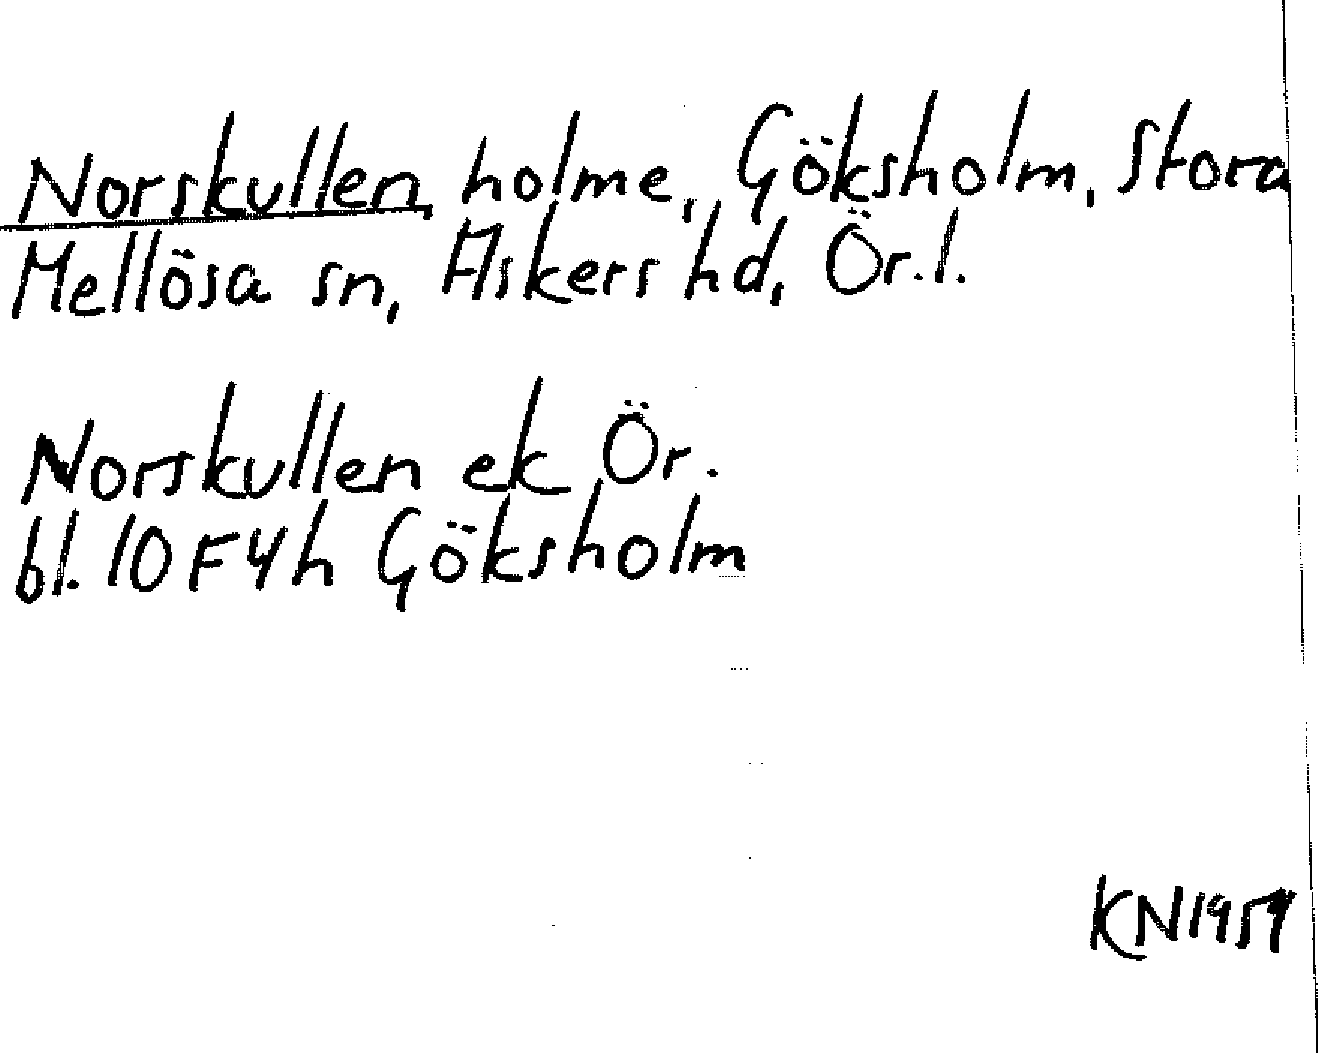 Norskullen, holme, Göksholm, Stora
Mellösa sn, Askers hd, Ör.l.
Norskullen ek Ör.
bl. 10F4h Göksholm
KN1959